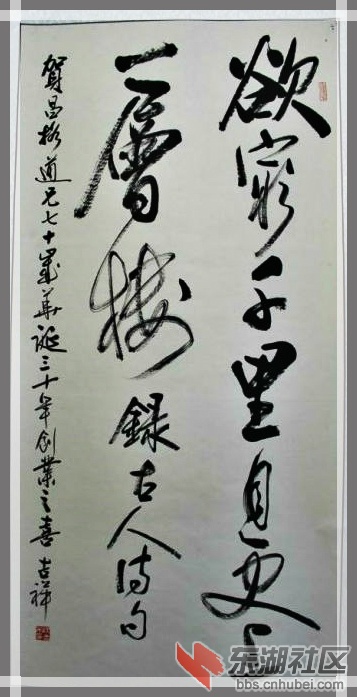 欲窮千里目更上
一層樓 錄古人诗句
賀昌道兄七十歲華誕三十年創業之喜 吉祥
东湖社区
bbs.cnhubei.com